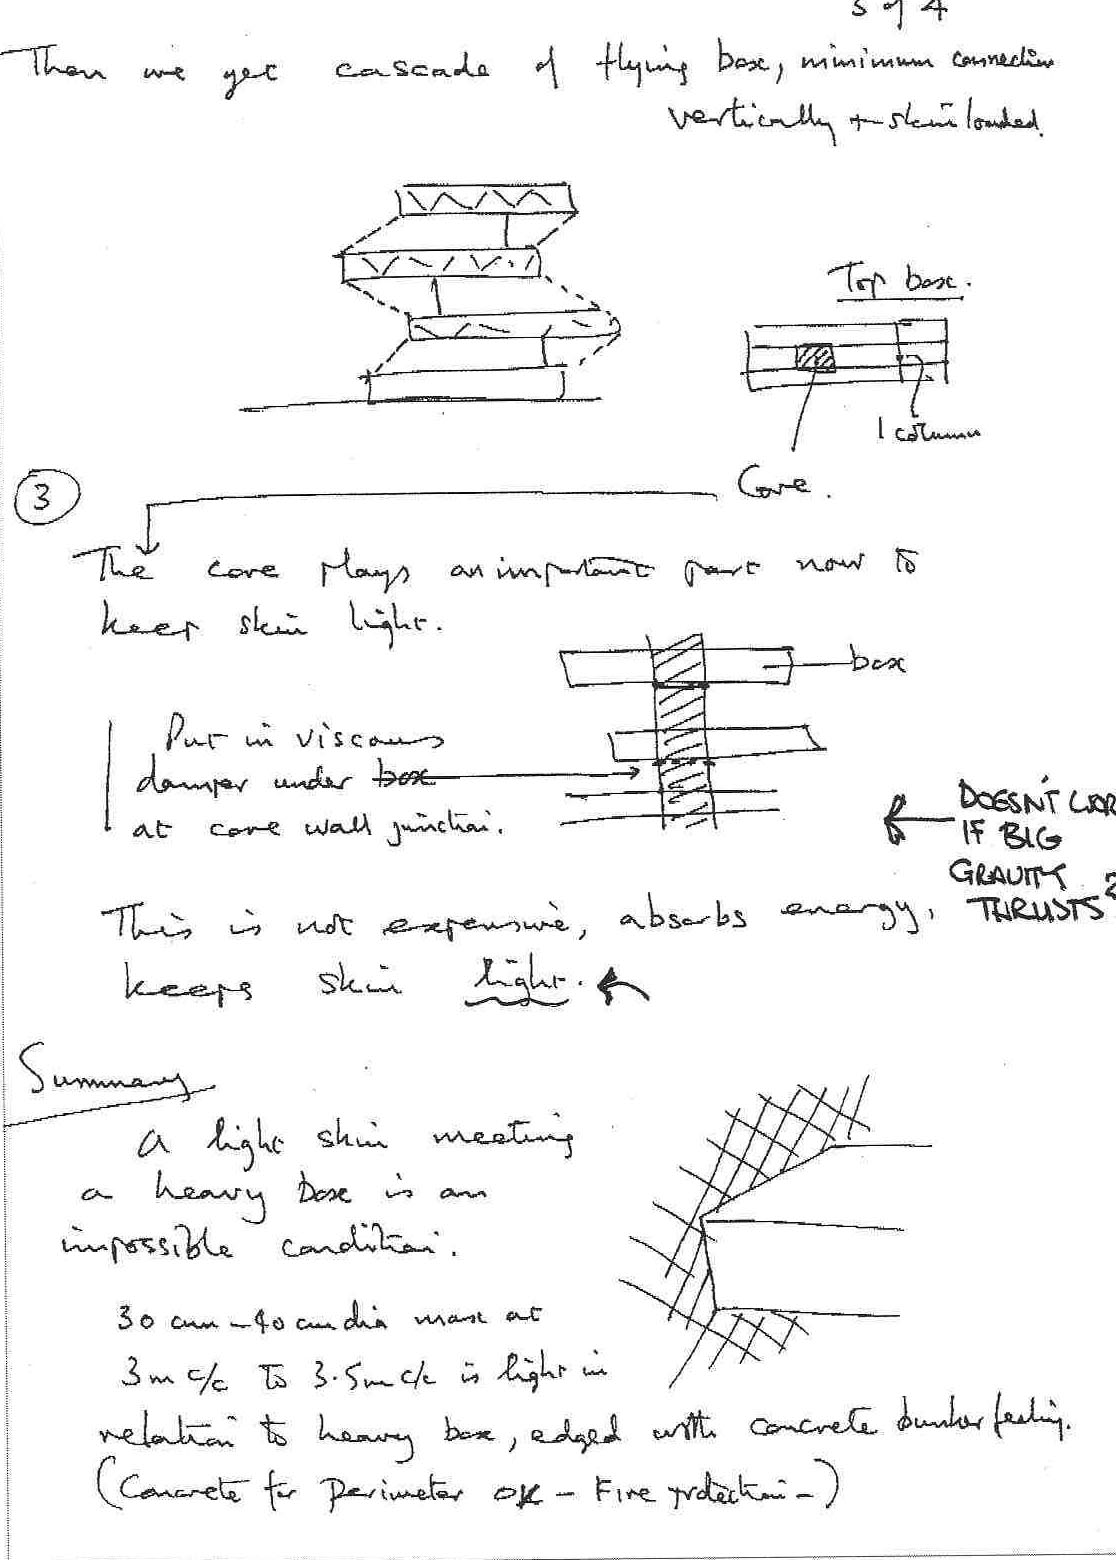 3 of 4
Then we get cascade of flying box, minimum connection
vertically + skin loaded.
Top box.
1 column
Core.
3
The core plays an important part now to
keep skin light.
box
Put in viscous
damper under box
at core wall junction.
DOESN'T
IF BIG
GRAVITY
THRUSTS?
This is not expensive, absorbs energy,
keeps skin light.
Summary
A light skin meeting
a heavy box is an
impossible condition.
30 cm - 40 cm dia max at
3m c/c to 3.5m c/c is light in
relation to heavy box, edged with concrete bunker feeling.
(Concrete for Perimeter OK - Fire protection -)